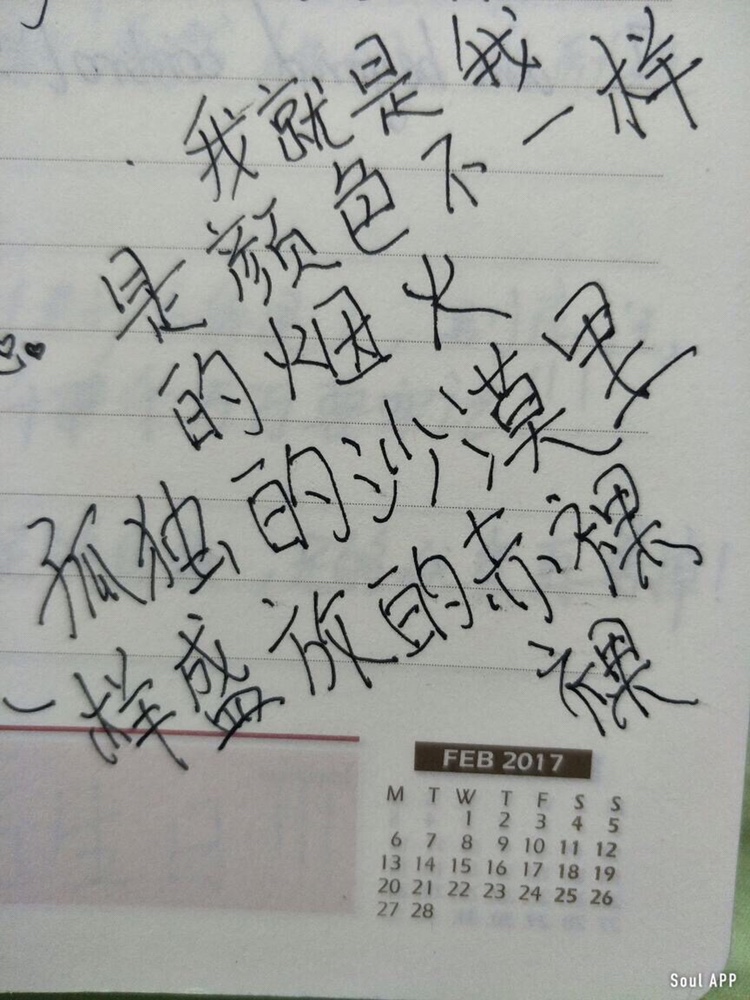 我就是我
是颜色不一样
的烟火
孤独的沙漠里
一样盛放的赤裸
裸
FEB 2017
M T W T F S S
1 2 3 4 5
6 7 8 9 10 11 12
13 14 15 16 17 18 19
20 21 22 23 24 25 26
27 28
Soul APP